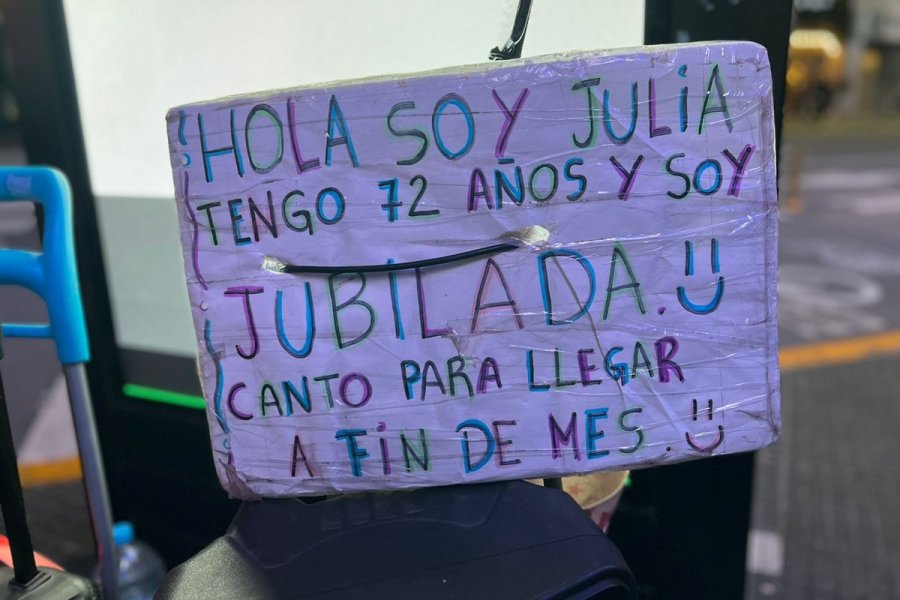 ¡HOLA SOY JULiA
TENGO 72 AÑOS Y SOY
JUBiLADA. :)
CANTO PARA LLEGAR
A FiN DE MES. :)